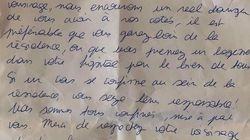 voisinage, mais encourons un reel danger
de vous avoir à nos cotés, il est
préférable que vous gariez loin de la
résidence, ou que vous preniez un logement
dans votre hopital pour le bien de tous
Si un cas se confirme au sein de la
résidence vous serez tenu responsable!
Nous sommes tous confinés, mere à part
vous. Merci de respecter votre voisinage